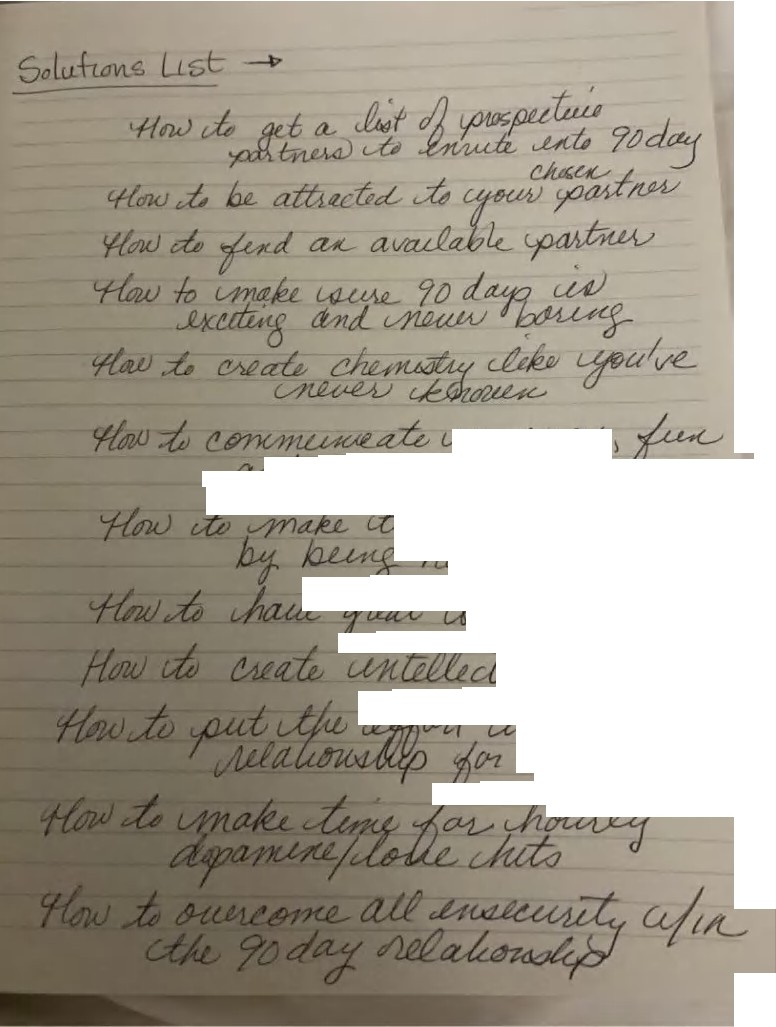 Solutions List →
How to get a list of prospective
partners to invite into 90 day
chosen
How to be attracted to your partner
How to find an available partner
How to make sure 90 days is
exciting and never boring
How to create chemistry like you've
never known
How to communicate , fun
How to make it
by being
How to have great
How to create
How to put the effort
relationship for
How to make time for hourly
dopamine/love hits
How to overcome all insecurity w/in
the 90 day relationship